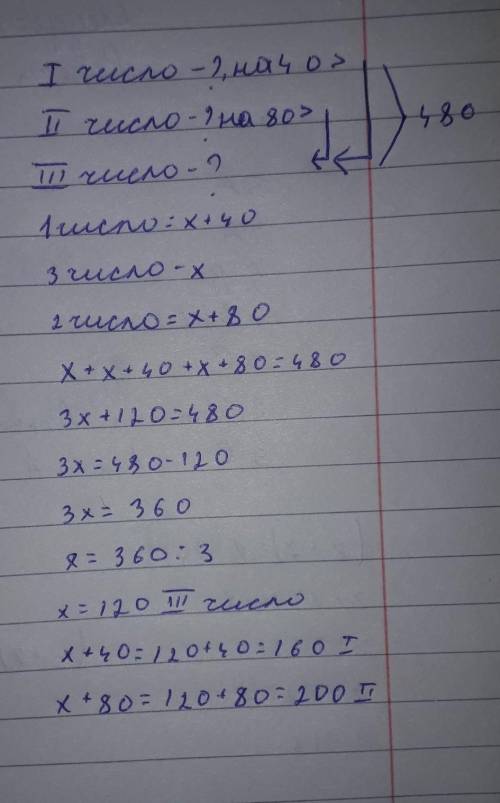 I число - ?, на 40 >
II число - ? на 80 >
480
III число - ?
1 число = x + 40
3 число - x
2 число = x + 80
x + x + 40 + x + 80 = 480
3x + 120 = 480
3x = 480 - 120
3x = 360
x = 360 : 3
x = 120 III число
x + 40 = 120 + 40 = 160 I
x + 80 = 120 + 80 = 200 II